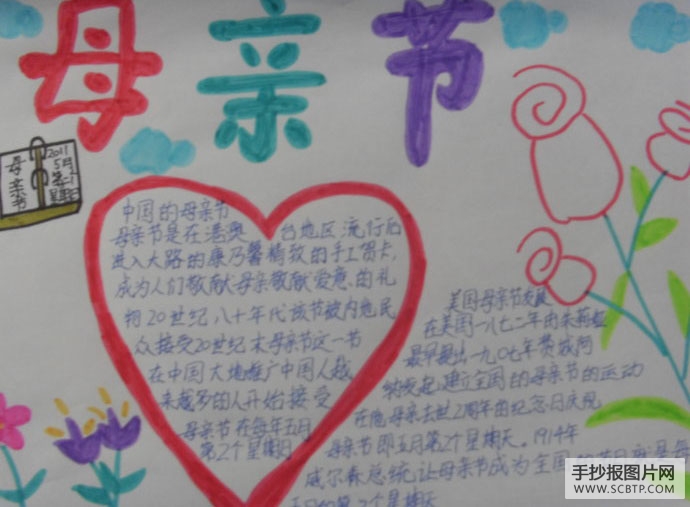 母亲节
母亲节
2011
5月
第二个
星期日
中国的母亲节
母亲节是在港奥 台地区流行后
进入大路的康乃馨精致的手工贺卡,
成为人们敬献母亲敬献爱意的礼
物20世纪八十年代该节被内地民
众接受20世纪末母亲节这一节
在中国大地推广中国人越
来越多的人开始接受
母亲节在每年五月
第2个星期日
美国母亲节发展
在美国一八七二年由朱莉娅
最早提出一九0七年费城阿
纳发起,建立全国的母亲节的运动
在她母亲去世2周年的纪念日庆祝
母亲节即五月第2个星期天。1914年
威尔森总统让母亲节成为全国的节日就是每
五月的第2个星期天
手抄报图片网
WWW.SCBTP.COM